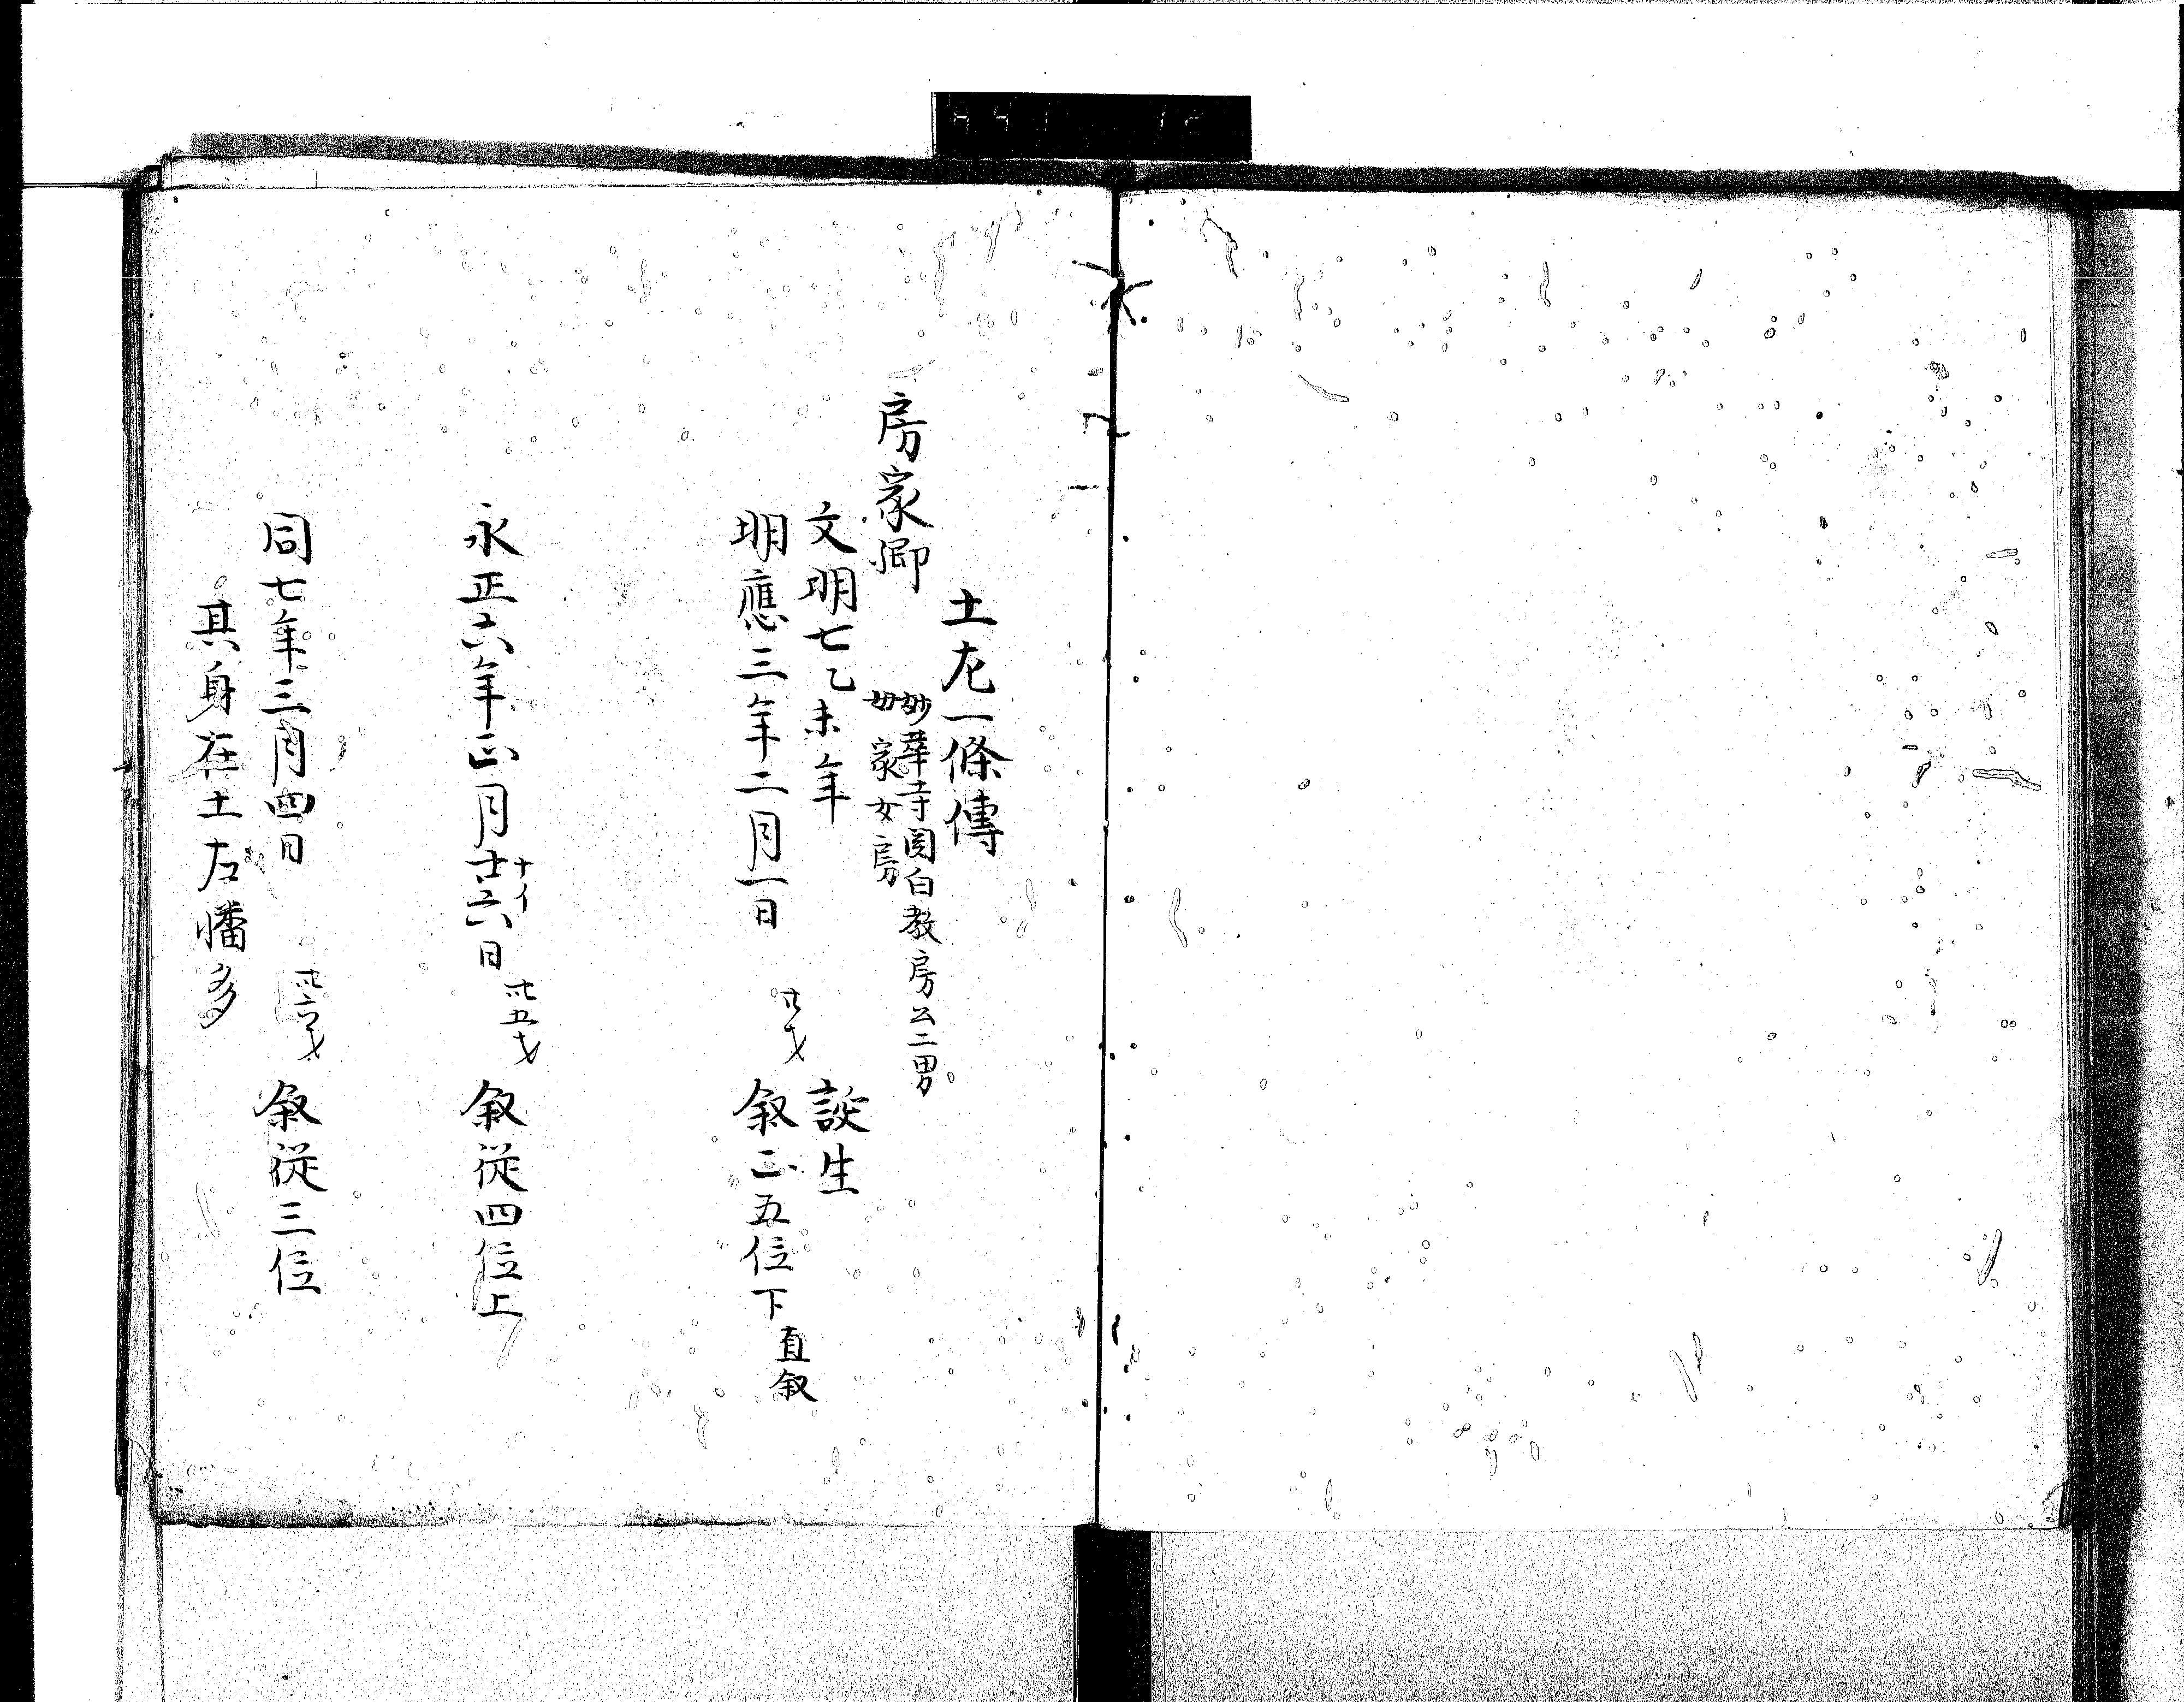 土左一條傳
房家卿
妙華寺関白教房公二男
母 家女房
文明七乙未年 誕生
明應三年二月一日 廿才 叙正五位下 直叙
永正六年正月廿六日 十イ 卅五才 叙從四位上
同七年三月四日 卅六才 叙從三位
其身在土左幡多